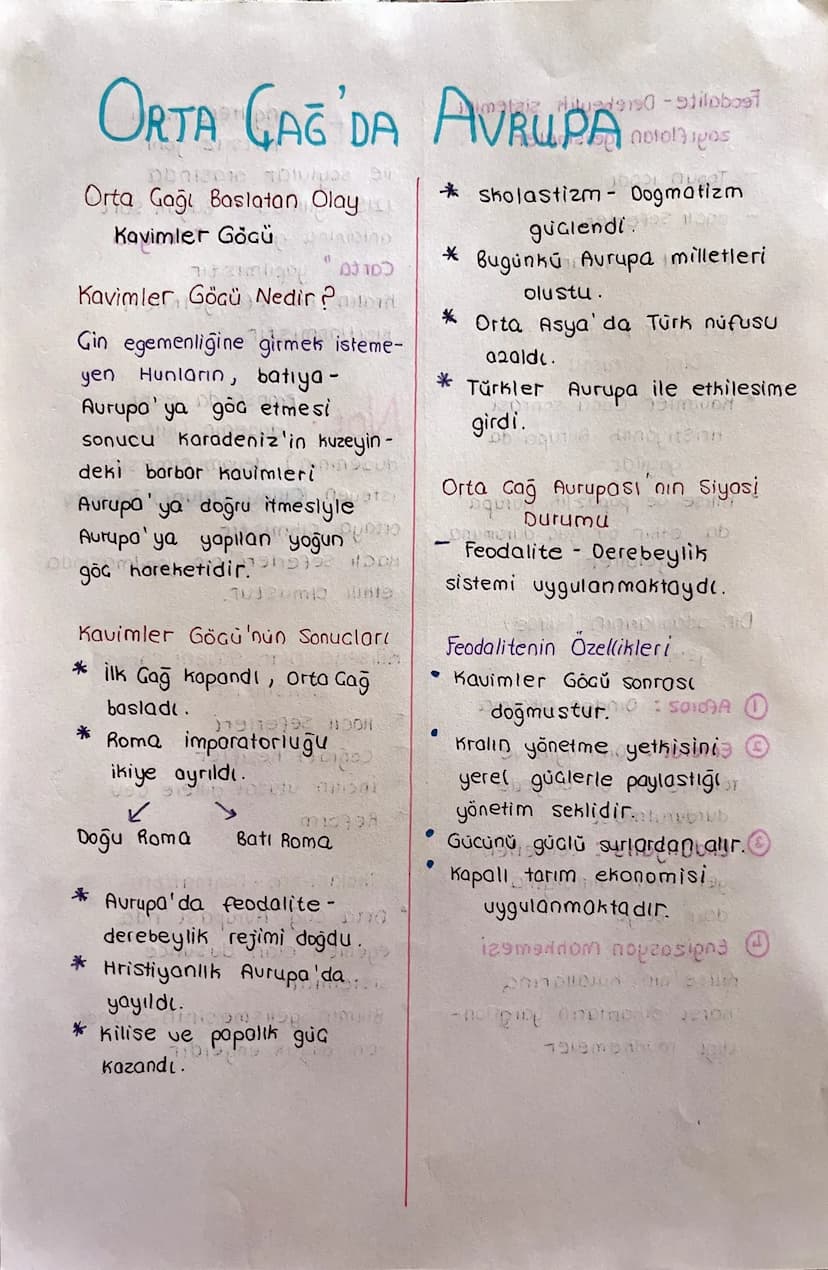 ORTA ÇAĞ'DA AVRUPA
Orta Çağı Başlatan Olay
Kavimler Göçü
Kavimler Göçü Nedir?
Çin egemenliğine girmek isteme-
yen Hunların, batıya -
Avrupa'ya göç etmesi
sonucu Karadeniz'in kuzeyin-
deki barbar kavimleri
Avrupa'ya doğru itmesiyle
Avrupa'ya yapılan yoğun
göç hareketidir.
Kavimler Göçü'nün Sonuçları
* İlk Çağ kapandı, Orta Çağ
başladı.
* Roma imparatorluğu
ikiye ayrıldı.
↙ ↘
Doğu Roma Batı Roma
* Avrupa'da feodalite -
derebeylik rejimi doğdu.
* Hristiyanlık Avrupa'da
yayıldı.
* Kilise ve papalık güç
kazandı.
* Skolastizm - Dogmatizm
güçlendi.
* Bugünkü Avrupa milletleri
oluştu.
* Orta Asya'da Türk nüfusu
azaldı.
* Türkler Avrupa ile etkileşime
girdi.
Orta Çağ Avrupası'nın Siyasi
Durumu
- Feodalite - Derebeylik
sistemi uygulanmaktaydı.
Feodalitenin Özellikleri
• Kavimler Göçü sonrası
doğmuştur.
• Kralın yönetme yetkisini
yerel güçlerle paylaştığı
yönetim şeklidir.
• Gücünü güçlü surlardan alır.
• Kapalı tarım ekonomisi
uygulanmaktadır.